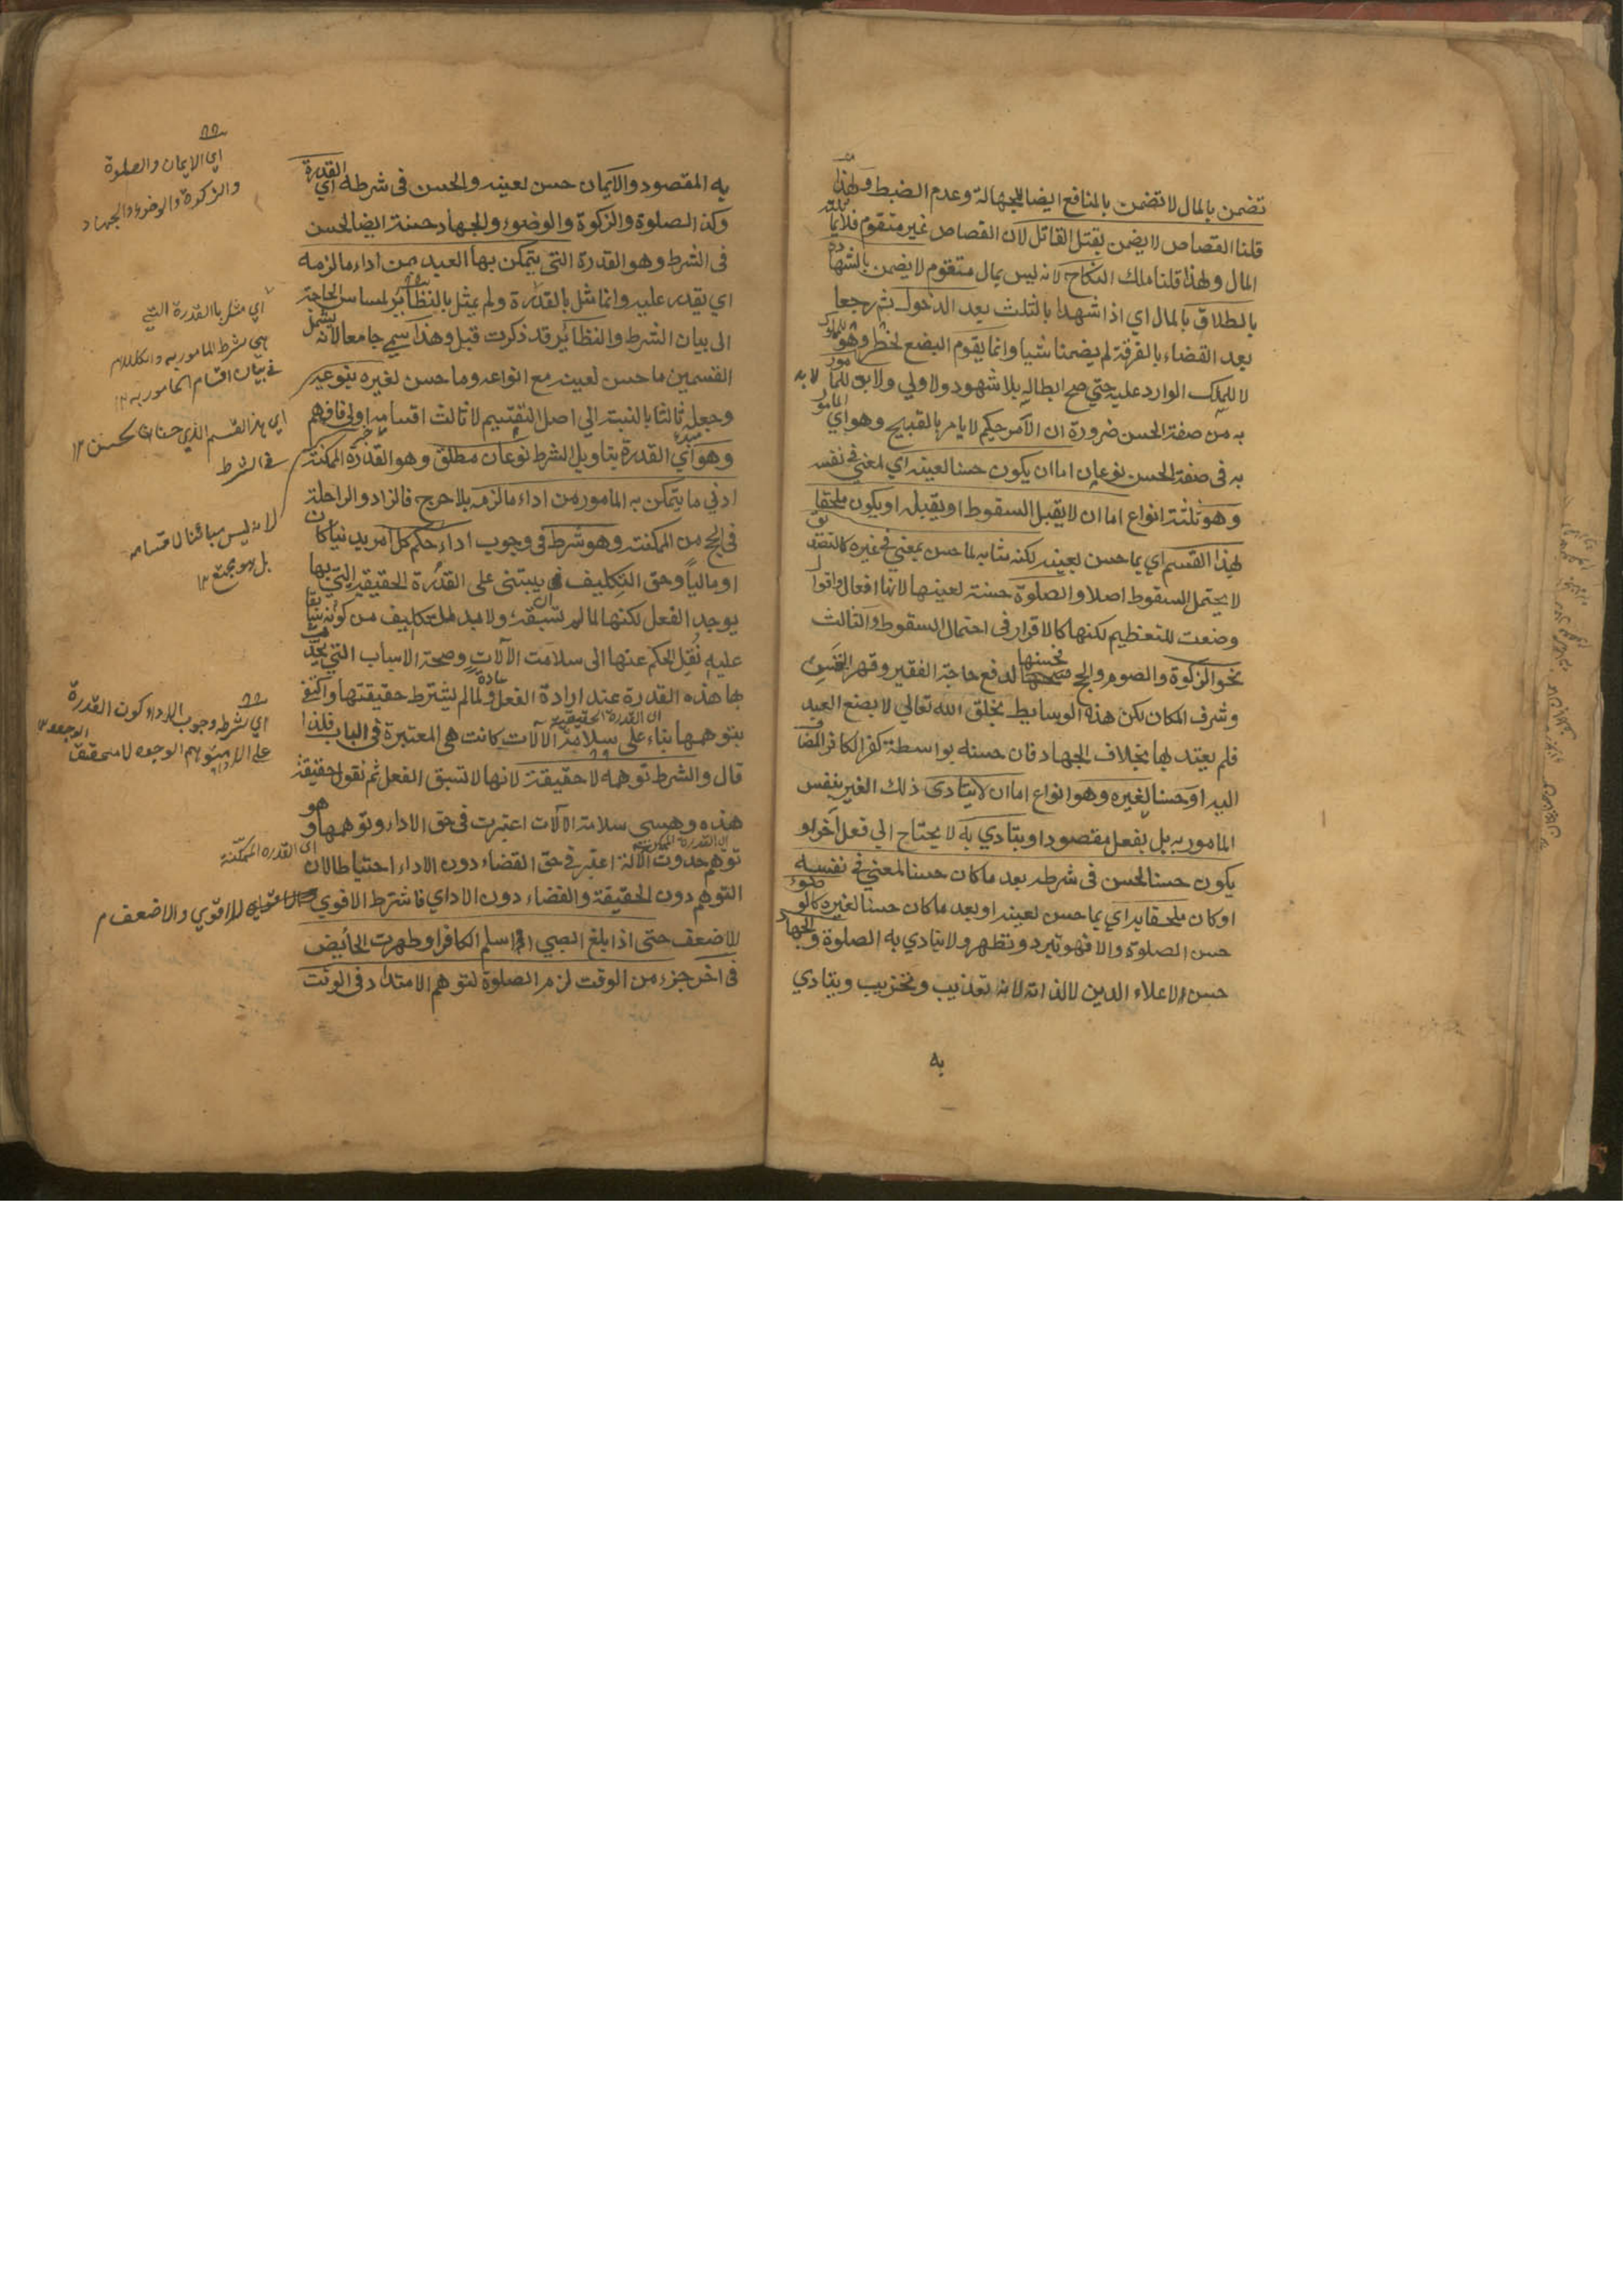 تضمن بالمال لا تضمن بالمنافع ايضا للجهالة وعدم الضبط ولهذا
قلنا القصاص لا يضمن بقتل القاتل لان القصاص غير متقوم فلا يماثله
المال ولهذا قلنا ملك النكاح لانه ليس بمال متقوم لا يضمن بالشهادة
بالطلاق بالمال اي اذا شهدا بالثلث بعد الدخول ثم رجعا
بعد القضاء بالفرقة لم يضمنا شيا وانما يقوم البضع لخطر وهو للمملوك
لا للملك الوارد عليه حتي صح ابطاله بلا شهود ولا ولي ولا بد للمامور
به من صفة الحسن ضرورة ان الآمر حكيم لا يامر بالقبيح وهو اي المامور
به في صفة الحسن نوعان اما ان يكون حسنا لعينه اي لمعني في نفسه
وهو ثلثة انواع اما ان لا يقبل السقوط او يقبله او يكون ملحقا
لهذا القسم اي بما حسن لعينه لكنه مشابه لما حسن بمعني في غيره كالتصديق
لا يحتمل السقوط اصلا والصلوة حسنة لعينها لانها افعال واقوال
وضعت للتعظيم لكنها كالاقرار في احتمال السقوط والثالث
نحو الزكوة والصوم والحج فحسنها لدفع حاجة الفقير وقهر النفس
وشرف المكان لكن هذه الوسايط بخلق الله تعالي لا بصنع العبد
فلم يعتد بها بخلاف الجهاد فان حسنه بواسطة كفر الكافر المضاف
اليه او حسنا لغيره وهو انواع اما ان لا يتادى ذلك الغير بنفس
المامور به بل بفعل مقصود او يتادي به لا يحتاج الي فعل آخر او
يكون حسنا لحسن في شرطه بعد ما كان حسنا لمعني في نفسه
او كان ملحقا به اي بما حسن لعينه او بعد ما كان حسنا لغيره كالوضوء
حسن الصلوة والا فهو تبرد وتطهر ولا يتادي به الصلوة والجهاد
حسن لاعلاء الدين لا لذاته لانه تعذيب وتخريب ويتادي
به
به المقصود والايمان حسن لعينه والحسن في شرطه اي القدرة
وكذا الصلوة والزكوة والوضوء والجهاد حسنة ايضا لحسن
في الشرط وهو القدرة التي يتمكن بها العبد من اداء ما لزمه
اي يقدر عليه وانما مثل بالقدرة ولم يمثل بالنظاير لمساس الحاجة
الى بيان الشرط والنظاير قد ذكرت قبل وهذا سمي جامعا لانه يشمل
القسمين ما حسن لعينه مع انواعه وما حسن لغيره بنوعيه
وجعل ثالثا بالنسبة الي اصل التقسيم لا ثالث اقسامه اولي فافهم
وهو اي القدرة بتاويل الشرط نوعان مطلق وهو القدرة الممكنة
ادني ما يتمكن به المامور من اداء ما لزمه بلا حرج فالزاد والراحلة
في الحج من الممكنة وهو شرط في وجوب اداء حكم كل امر بدنيا كان
او ماليا وحق التكليف يبتنى على القدرة الحقيقية التي بها
يوجد الفعل لكنها لما لم تسبقه ولا بد للتكليف من كونه سابقا
عليه نقل الحكم عنها الى سلامت الآلات وصحة الاسباب التي تحدث
بها هذه القدرة عند ارادة الفعل عادة ولما لم يشترط حقيقتها واكتفي
بتوهمها بناء على سلامة الآلات كانت هي المعتبرة في الباب فلذا
اي القدرة الحقيقية
قال والشرط توهمه لا حقيقة لانها لا تسبق الفعل ثم نقول حقيقة
هذه وهي سلامة الآلات اعتبرت في حق الاداء وتوهمها وهو
توهم حدوث الآلة اعتبر في حق القضاء دون الاداء احتياطا لان
التوهم دون الحقيقة والقضاء دون الاداي فاشترط الاقوي للاقوي والاضعف
للاضعف حتى اذا بلغ الصبي او اسلم الكافر او طهرت الحايض
في آخر جزء من الوقت لزم الصلوة لتوهم الامتداد في الوقت
اي الايمان والصلوة
والزكوة والوضوء والجهاد
اي مثل باالقدرة التي
هي شرط المامور به والكلام
في بيان اقسام المامور به ١٢
اي هذا القسم الذي حسنا لحسن ١٢
في الشرط
لانه ليس مبائنا لاقسامه
بل هو مجتمع ١٢
اي شرط وجوب الاداء كون القدرة
على الاداء متوهم الوجود لا متحقق الوجود ١٢
اي القدرة الممكنة